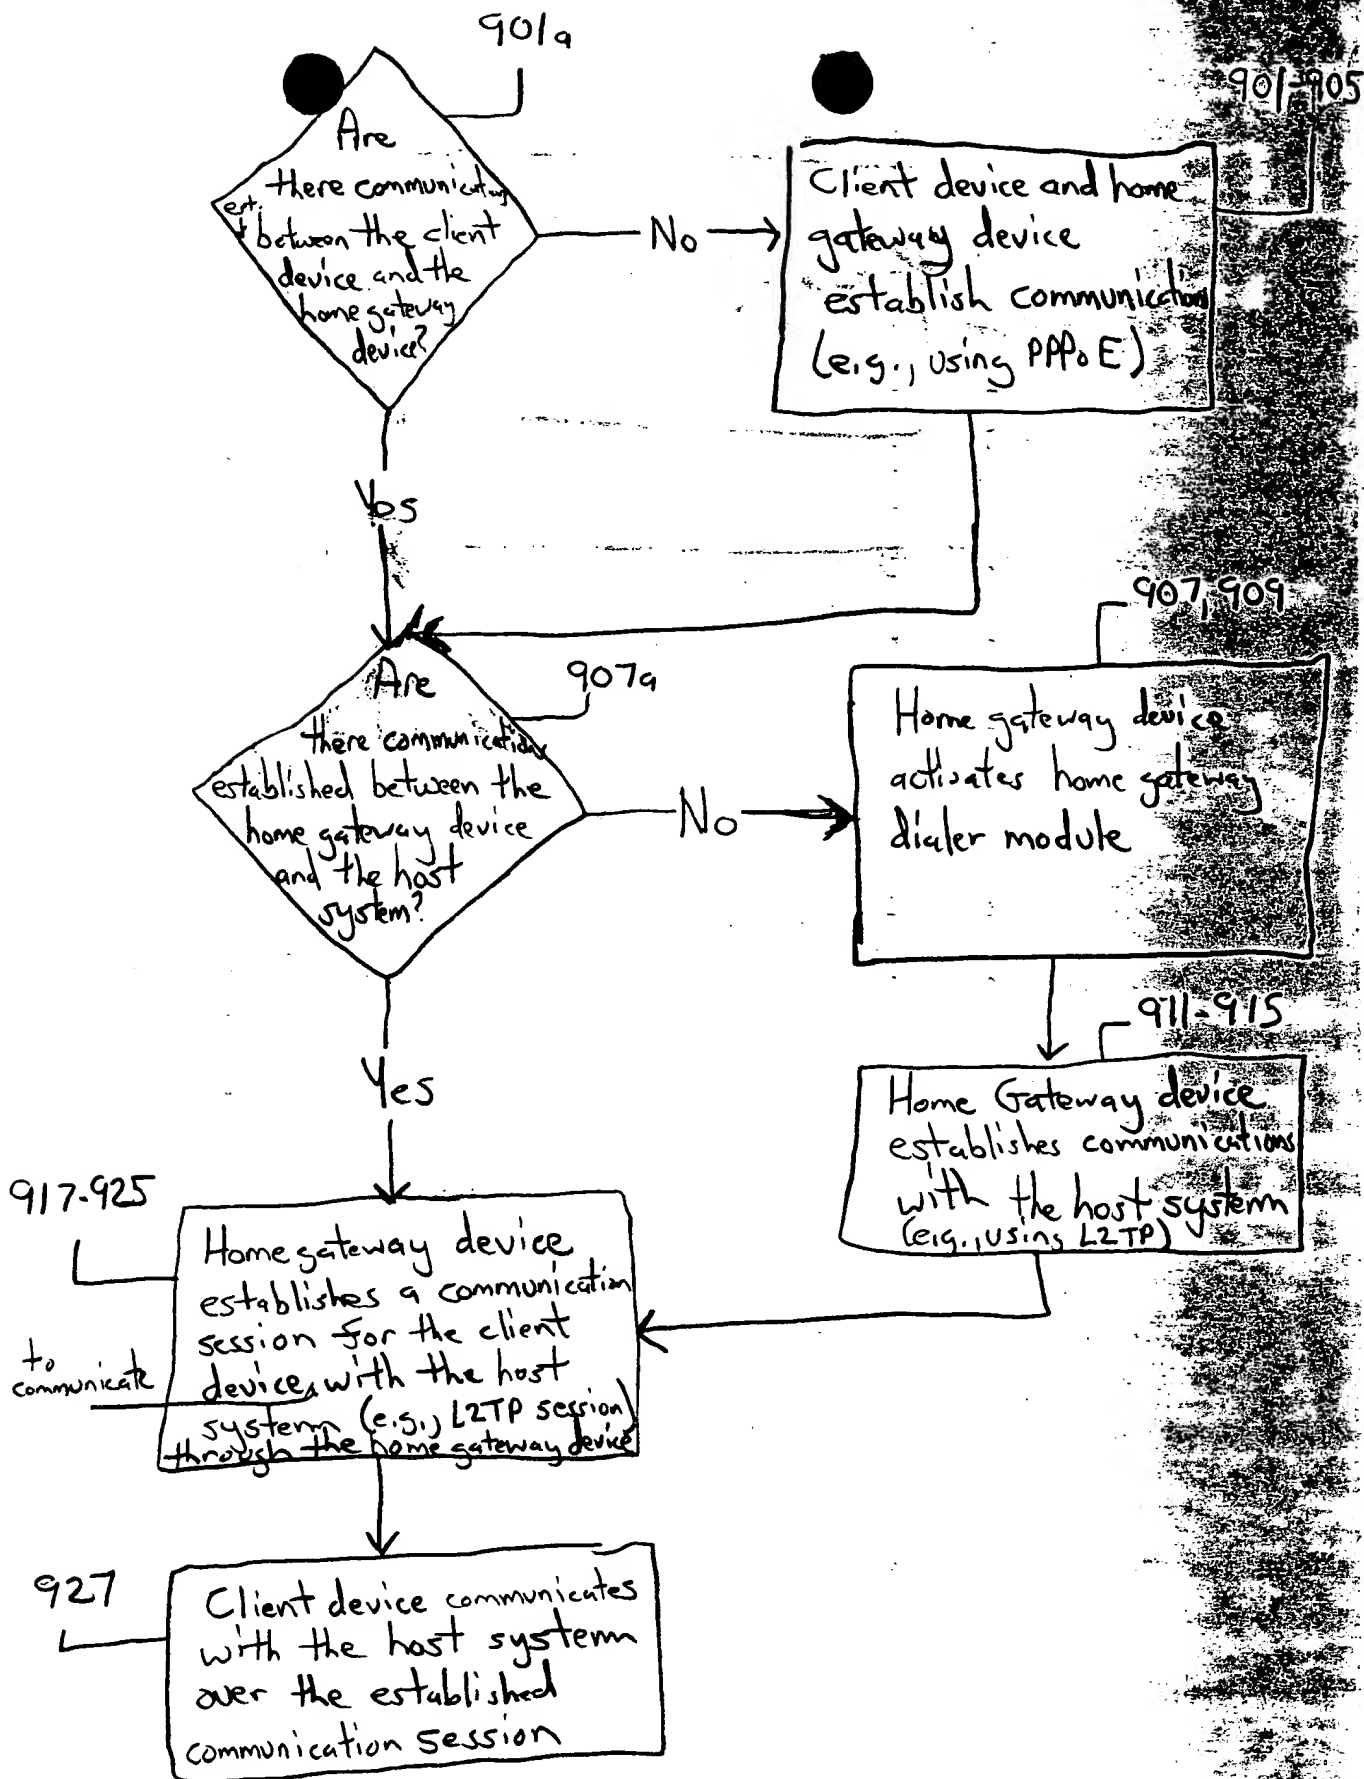 901a
Are
there communications
est.
between the client
device and the
home gateway
device?
No
901-905
Client device and home
gateway device
establish communications
(e.g., using PPPoE)
Yes
907a
Are
there communications
established between the
home gateway device
and the host
system?
No
907, 909
Home gateway device
activates home gateway
dialer module
911-915
Home Gateway device
establishes communications
with the host system
(e.g., using L2TP)
Yes
917-925
Home gateway device
establishes a communication
session for the client
to
communicate
device, with the host
system (e.g., L2TP session)
through the home gateway device
927
Client device communicates
with the host system
over the established
communication session